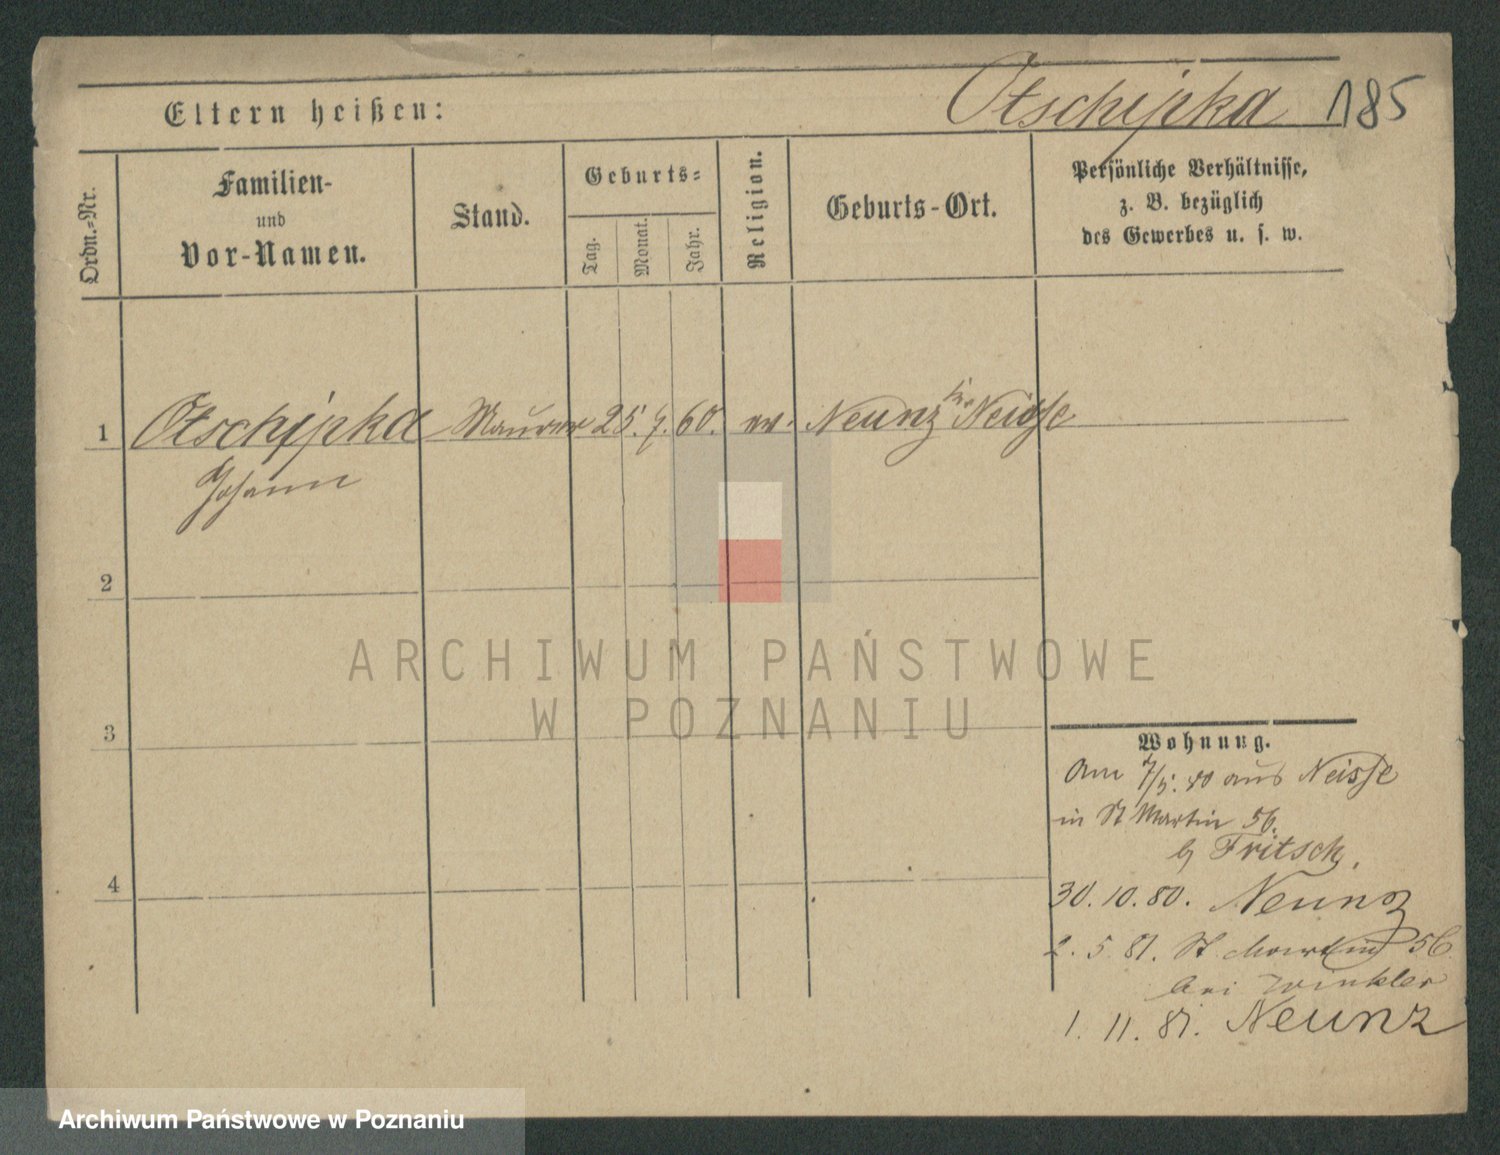 Otschipka 185
Eltern heißen:
Ordn.-Nr.
Familien-
und
Vor-Namen.
Stand.
Geburts-
Tag.
Monat.
Jahr.
Religion.
Geburts-Ort.
Persönliche Verhältnisse,
z. B. bezüglich
des Gewerbes u. s. w.
1 Otschipka Maurer 25. 7. 60. Neunz Neisse
Johann
2
ARCHIWUM PAŃSTWOWE
W POZNANIU
3
Wohnung.
Am 7/5. 80 aus Neisse
in St Martin 56.
b/ Fritsch.
4
30. 10. 80. Neunz
2. 5. 81. St Martin 56
bei Winkler
1. 11. 81. Neunz
Archiwum Państwowe w Poznaniu